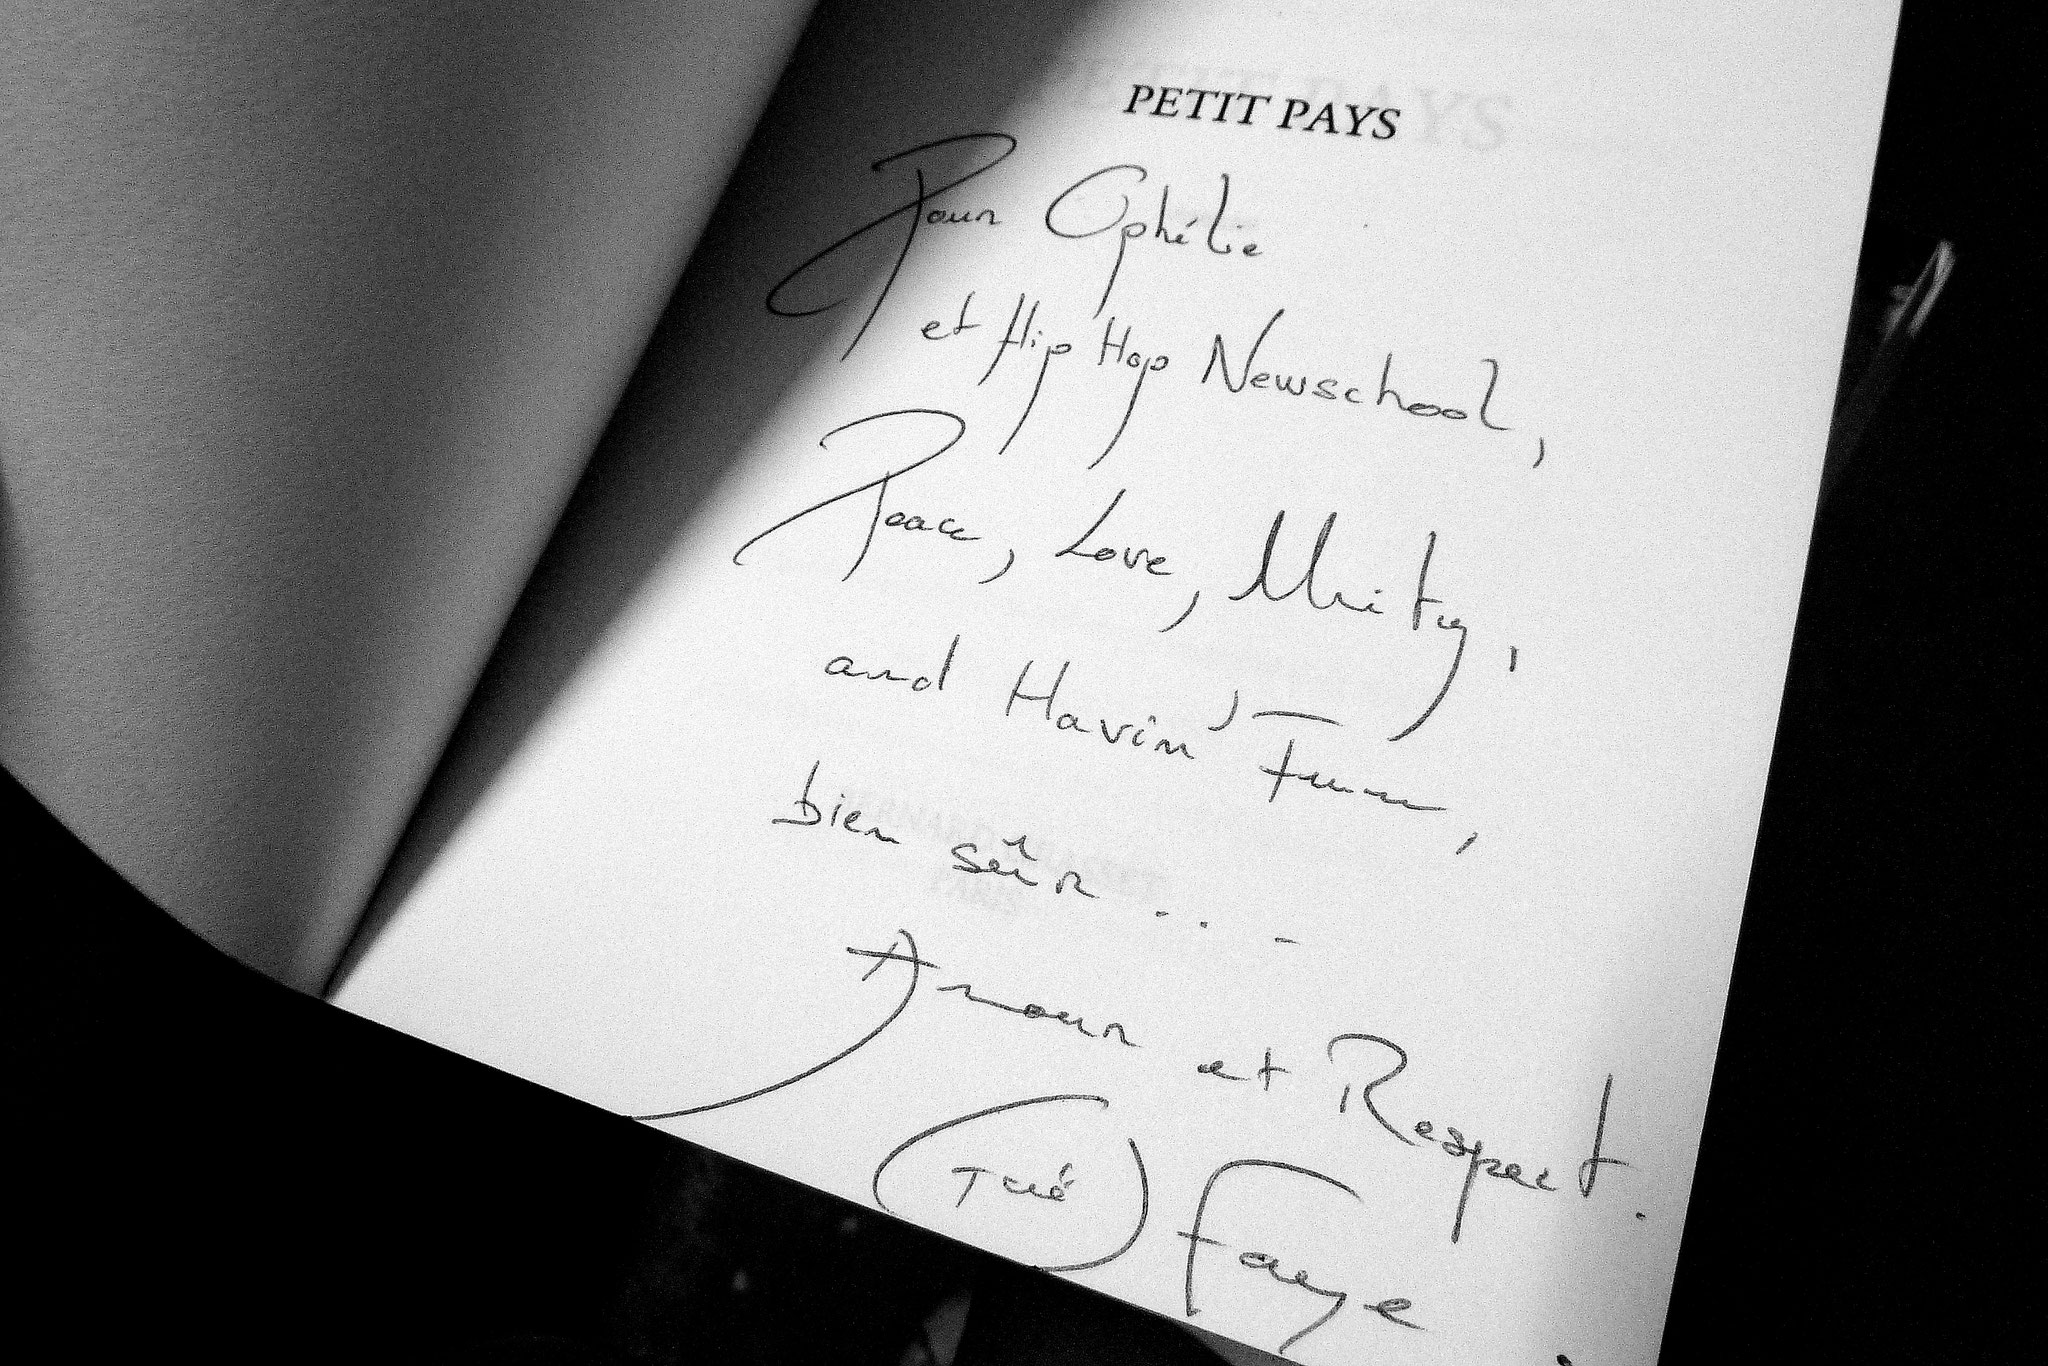 PETIT PAYS
Pour Ophélie
et Hip Hop Newschool,
Peace, Love, Unity,
and Havin' Fun,
bien sûr...
Amour et Respect.
Faye